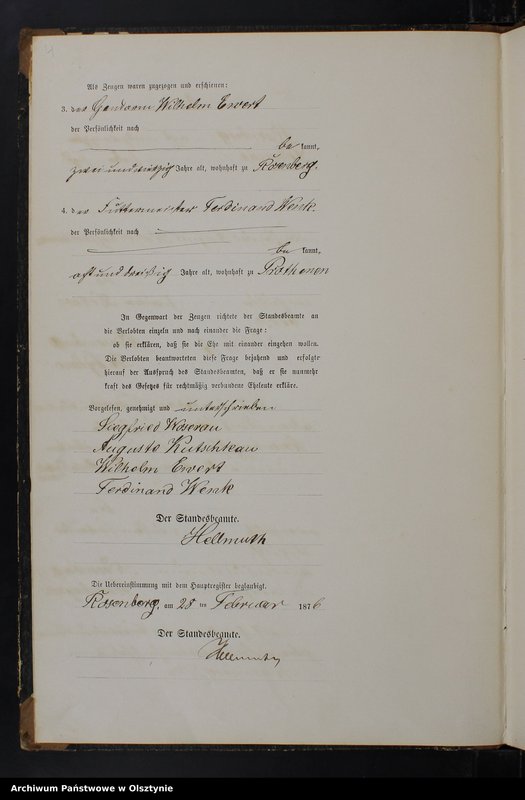 Als Zeugen waren zugezogen und erschienen:
3. der Gendarm Wilhelm Ewert
der Persönlichkeit nach
be kannt,
zweiundvierzig Jahre alt, wohnhaft zu Rosenberg.
4. der Futtermeister Ferdinand Wenk.
der Persönlichkeit nach
be kannt,
achtunddreißig Jahre alt, wohnhaft zu Prothenen
In Gegenwart der Zeugen richtete der Standesbeamte an
die Verlobten einzeln und nach einander die Frage:
ob sie erklären, daß sie die Ehe mit einander eingehen wollen.
Die Verlobten beantworteten diese Frage bejahend und erfolgte
hierauf der Ausspruch des Standesbeamten, daß er sie nunmehr
kraft des Gesetzes für rechtmäßig verbundene Eheleute erkläre.
Vorgelesen, genehmigt und unterschrieben
Siegfried Woserau
Auguste Kutschkau
Wilhelm Ewert
Ferdinand Wenk
Der Standesbeamte.
Hellmuth
Die Uebereinstimmung mit dem Hauptregister beglaubigt.
Rosenberg, am 28 ten Februar 1876
Der Standesbeamte.
Hellmuth
Archiwum Państwowe w Olsztynie